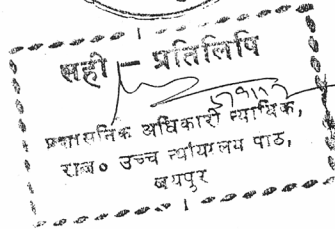 सही प्रतिलिपि
प्रशासनिक अधिकारी न्यायिक,
राज० उच्च न्यायालय पीठ,
जयपुर